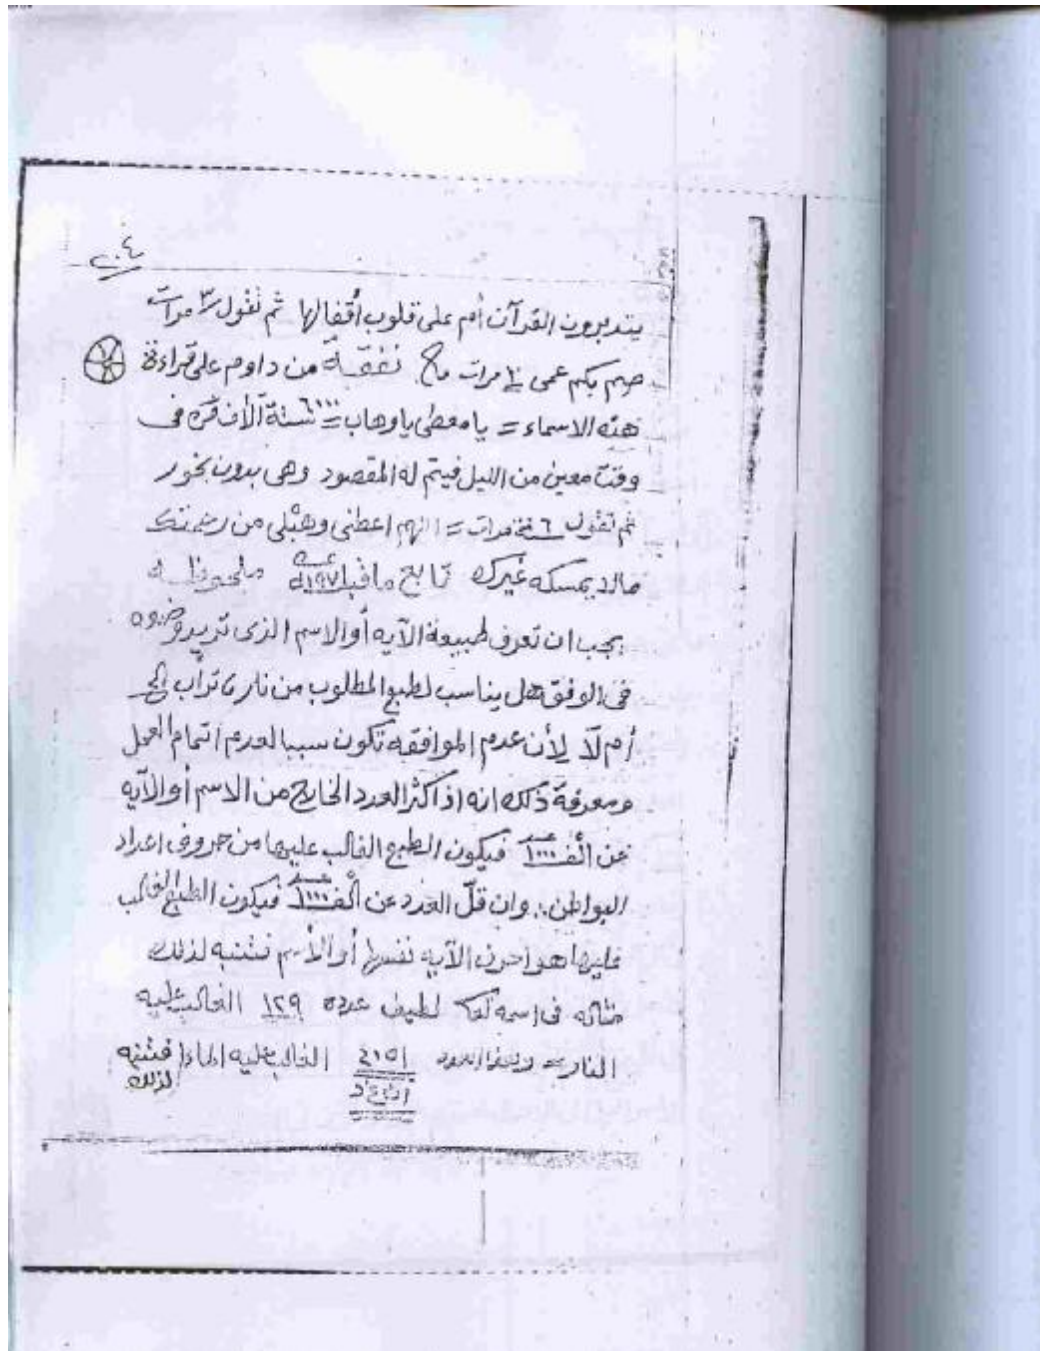 ٢٠٤
يتدبرون القرآن أم على قلوب أقفالها ثم تقول ٣ مرات
صم بكم عمى مرات من داوم على قراءة
هذه الاسماء = يا معطى يا وهاب = ٦٠٠٠ ستة آلاف مره فى
وقت معين من الليل فيتم له المقصود وهى بدون بخور
ثم تقول ٦ ستة مرات = اللهم اعطنى وهبلى من رحمتك
مالا يمسكه غيرك تابع ما قبل ١٩٧ ملحوظه
يجب ان تعرف طبيعة الآيه أو الاسم الذى تريد
فى الافق هل يناسب لطبع المطلوب من نار تراب الخ
أم لا لأن عدم الموافقه تكون سببا لعدم اتمام العمل
ومعرفة ذلك انه اذا كثر العدد الخارج من الاسم أو الآيه
عن ألف ١٠٠٠ فيكون الطبع الغالب عليها من حروف اعداد
البواطن . وان قل العدد عن ألف ١٠٠٠ فيكون الطبع الغالب
عليها هو احرف الآيه نفسها أو الاسم فتنبه لذلك
مثاله فى اسمه لطيف عدده ١٢٩ الغالب عليه
النار = الغالب عليه الماء فتنبه
لذلك